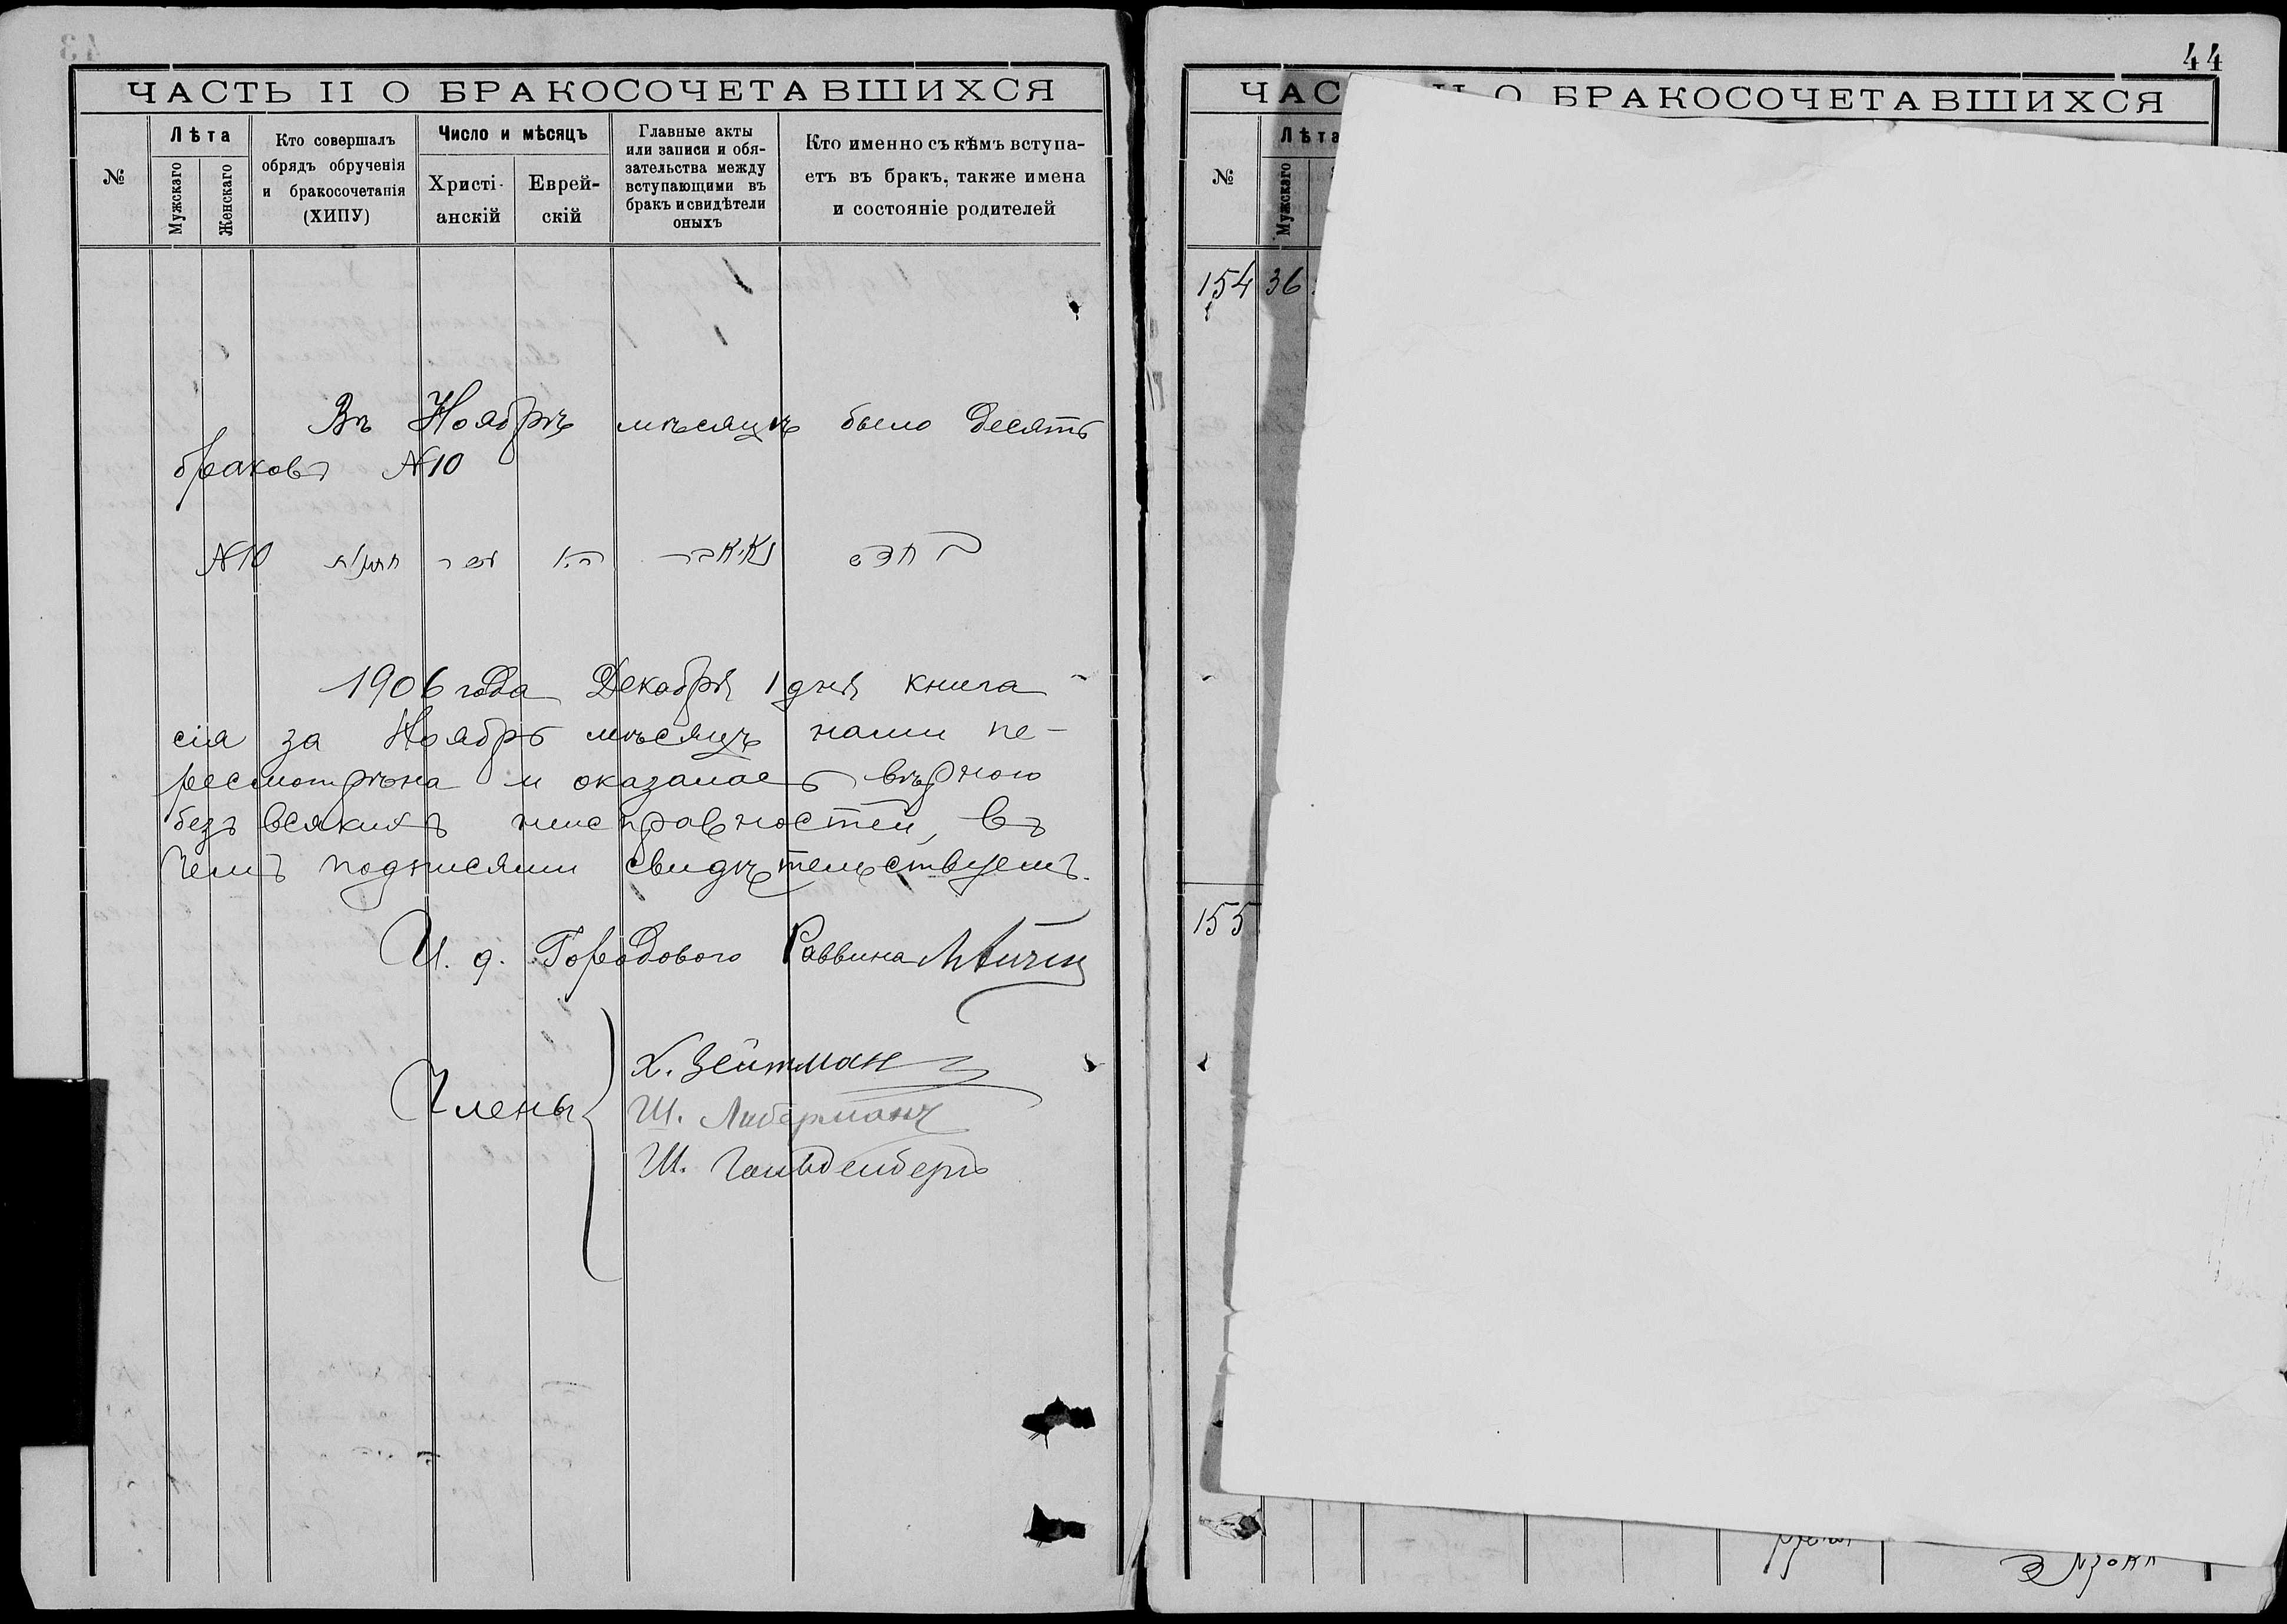 43
ЧАСТЬ II О БРАКОСОЧЕТАВШИХСЯ
№
Лѣта
Мужскаго
Женскаго
Кто совершалъ
обрядъ обрученія
и бракосочетанія
(ХИПУ)
Число и мѣсяцъ
Христі-
анскій
Еврей-
скій
Главные акты
или записи и обя-
зательства между
вступающими въ
бракъ и свидѣтели
оныхъ
Кто именно съ кѣмъ вступа-
етъ въ бракъ, также имена
и состояніе родителей
Въ Ноябрѣ мѣсяцѣ было десять
браковъ №10
№10
1906 года Декабря 1 дня книга
сія за Ноябрь мѣсяцъ нами пе-
ресмотрѣна и оказалась вѣрною
безъ всякихъ неисправностей, въ
чемъ подписями свидѣтельствуемъ.
И. д. Городового Раввина
Члены
Х. Зейтман
Ш. Либерманъ
Ш. Гольденберг
44
ЧАС II О БРАКОСОЧЕТАВШИХСЯ
№
Лѣта
Мужскаго
154 36
155